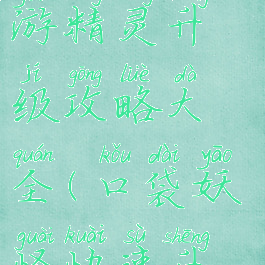 游精灵升
jí gōng lüè dà
级攻略大
quán kǒu dài yāo
全(口袋妖
guài kuài sù shēng
怪快速升